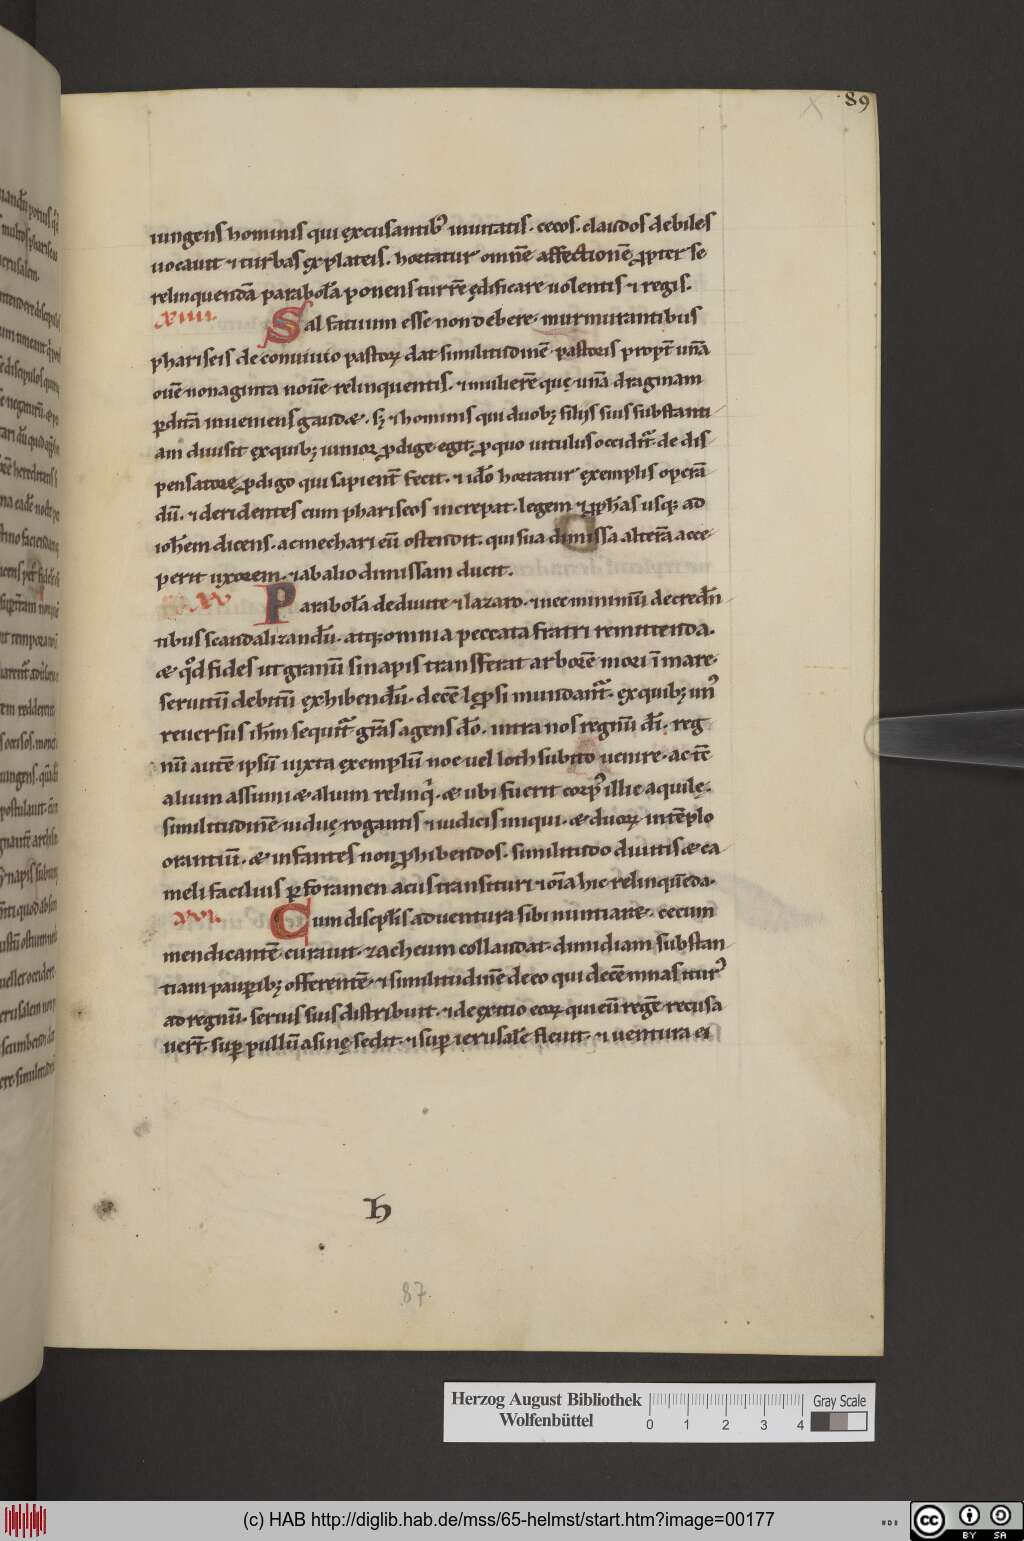 89
iungens hominis qui excusantib᾽ inuitatis. cecos. claudos debiles
uocauit ⁊ turbas ex plateis. hortatur omnē affectionē ꝓpter se
relinquendā parabolā ponens turrē ędificare uolentis ⁊ regis.
XIIII.
Sal fatuum esse non debere. murmurantibus
phariseis de conuiuio pastoꝝ dat similitudinē. pastoris propt̄ unā
ouē nonaginta nouē relinquentis. ⁊ mulierē quę unā dragmam
ꝑditā inueniens gaudet. sꝫ ⁊ hominis qui duobꝫ filijs suis substanti
am diuisit ex quibꝫ iunior ꝓdige egit. ꝓ quo uitulus occidit̄. de dis
pensatore ꝓdigo qui sapient̄ fecit. ⁊ ideo hortatur exemplis operā
dū. ⁊ deridentes eum phariseos increpat. legem ⁊ ꝓphas usqꝫ ad
ioh̄em dicens. ac mechari eū ostendit. qui sua dimissa alterā acce
perit uxorem. ⁊ ab alio dimissam ducit.
XV
Parabolā de diuite ⁊ lazaro. ⁊ nec minimū de credēn
tibus scandalizandū. atqꝫ omnia peccata fratri remittenda.
& qd̄ fides ut granū sinapis transferat arborē mori ī mare.
seruitū debitū exhibendū. decē lęprosi mundant̄. ex quibꝫ un᾽
reuersus ih̄m sequit̄ grās agens dō. intra nos regnū dī. reg
nū autē ipsū iuxta exemplū noe uel loth subito uenire. ac tē
alium assumi & alium relinqi. & ubi fuerit corp᾽ illic aquilę.
similitudinē uiduę rogantis ⁊ iudicis iniqui. & duoꝝ in tēplo
orantiū. & infantes non ꝓhibendos. similitudo diuitis & ca
meli facilius ꝑ foramen acus transituri ⁊ oīa hic relinquēda.
XVI.
Cum discipl̄is aduentura sibi nuntiaret. cecum
mendicantē curauit. zacheum collaudat. dimidiam substan
tiam pauꝑibꝫ offerentē. ⁊ similitudinē de eo qui decē mnas itur᾽
ad regnū. seruis suis distribuit. ⁊ de exitio eoꝝ qui eū regē recusa
uerī. suꝑ pullū asinę sedit. ⁊ suꝑ ierusalē fleuit. ⁊ uentura ei
h
87
Herzog August Bibliothek
Wolfenbüttel
0 1 2 3 4
Gray Scale
(c) HAB http://diglib.hab.de/mss/65-helmst/start.htm?image=00177
cc BY SA